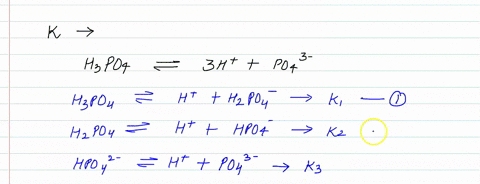 K →
H₃PO₄ ⇌ 3H⁺ + PO₄³⁻
H₃PO₄ ⇌ H⁺ + H₂PO₄⁻ → K₁ — ①
H₂PO₄ ⇌ H⁺ + HPO₄⁻ → K₂
HPO₄²⁻ ⇌ H⁺ + PO₄³⁻ → K₃